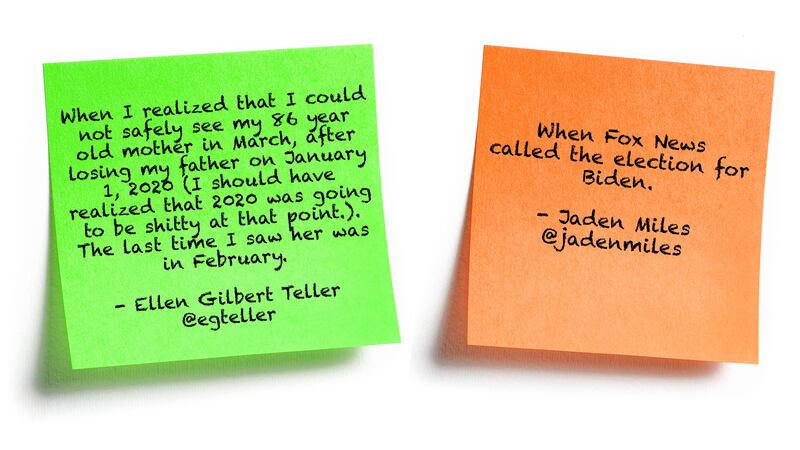 When I realized that I could
not safely see my 86 year
old mother in March, after
losing my father on January
1, 2020 (I should have
realized that 2020 was going
to be shitty at that point.).
The last time I saw her was
in February.
- Ellen Gilbert Teller
@egteller
When Fox News
called the election for
Biden.
- Jaden Miles
@jadenmiles